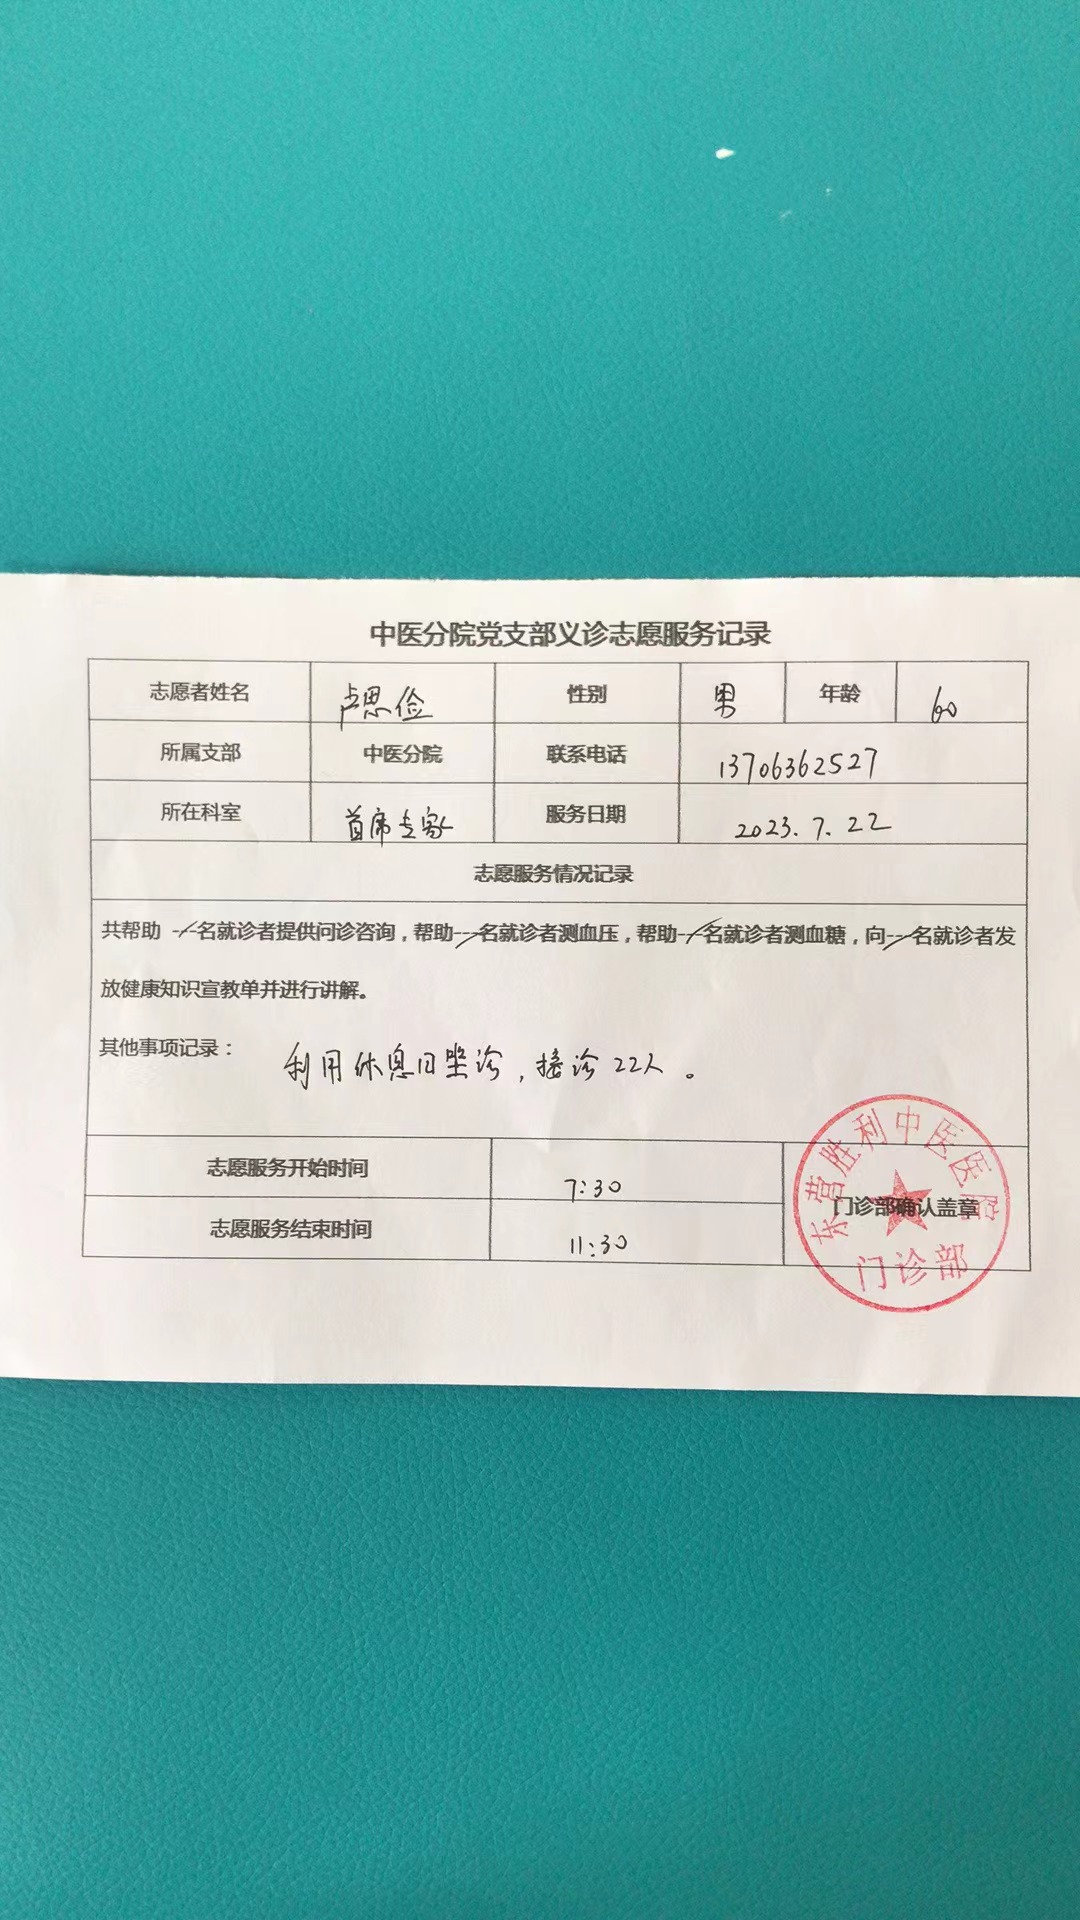 中医分院党支部义诊志愿服务记录
志愿者姓名 卢思俭 性别 男 年龄 60
所属支部 中医分院 联系电话 13706362527
所在科室 首席专家 服务日期 2023.7.22
志愿服务情况记录
共帮助 --名就诊者提供问诊咨询，帮助---名就诊者测血压，帮助---名就诊者测血糖，向---名就诊者发
放健康知识宣教单并进行讲解。
其他事项记录： 利用休息日坐诊，接诊22人。
志愿服务开始时间 7:30
门诊部确认盖章
志愿服务结束时间 11:30
东营胜利中医医院
门诊部